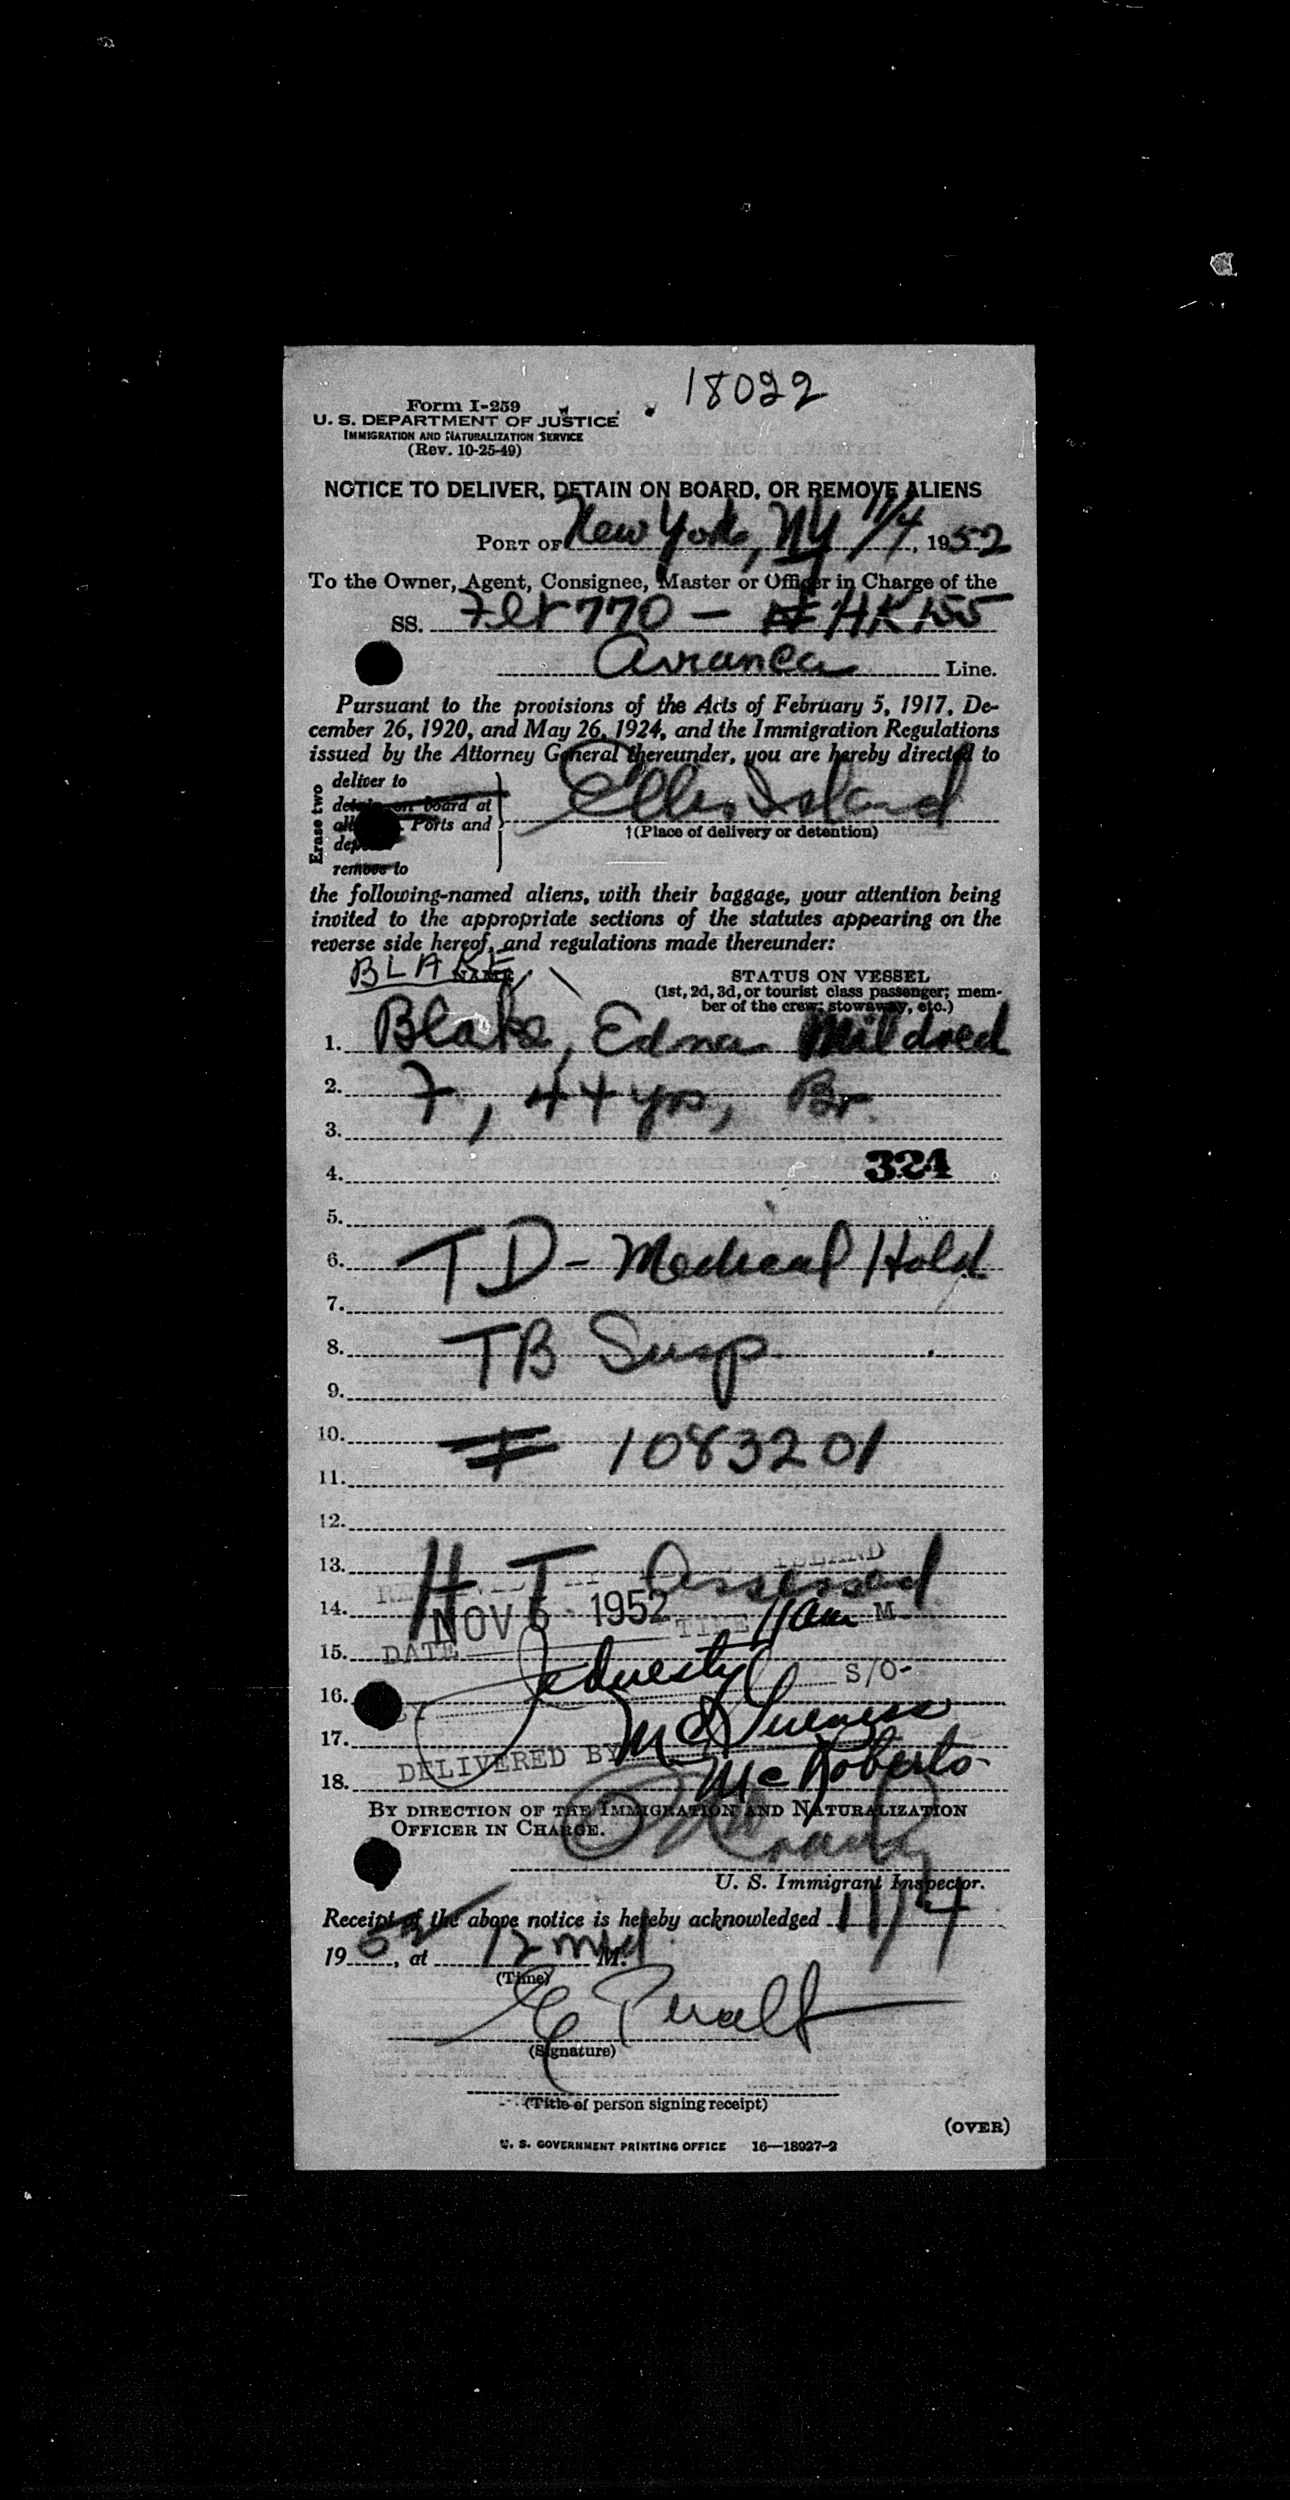 18022
Form I-259
U. S. DEPARTMENT OF JUSTICE
IMMIGRATION AND NATURALIZATION SERVICE
(Rev. 10-25-49)
NOTICE TO DELIVER, DETAIN ON BOARD, OR REMOVE ALIENS
PORT OF New York, NY 11/4, 1952
To the Owner, Agent, Consignee, Master or Officer in Charge of the
SS. Flt 770 - # HK 155
Avianca Line.
Pursuant to the provisions of the Acts of February 5, 1917, De-
cember 26, 1920, and May 26, 1924, and the Immigration Regulations
issued by the Attorney General thereunder, you are hereby directed to
Erase two
deliver to
detain on board at
all Ports and
remove to
Ellis Island
†(Place of delivery or detention)
the following-named aliens, with their baggage, your attention being
invited to the appropriate sections of the statutes appearing on the
reverse side hereof, and regulations made thereunder:
BLAKE
NAME
STATUS ON VESSEL
(1st, 2d, 3d, or tourist class passenger; mem-
ber of the crew; stowaway, etc.)
1. Blake, Edna Mildred
2. F, 44 yrs, Br.
3.
4. 324
5.
6. TD - Medical Hold
7.
8. TB Susp.
9.
10. # 1083201
11.
12.
13. H T Assessed ISLAND
14. NOV 5 1952 TIME 11am M
15. DATE
S/O-
16. BY
17. McGuiness
DELIVERED BY
18. McRoberts
BY DIRECTION OF THE IMMIGRATION AND NATURALIZATION
OFFICER IN CHARGE.
U. S. Immigrant Inspector.
Receipt of the above notice is hereby acknowledged 11/4
1952, at 12 mid M.
(Time)
(Signature)
(Title of person signing receipt)
(OVER)
U. S. GOVERNMENT PRINTING OFFICE 16—18027-2